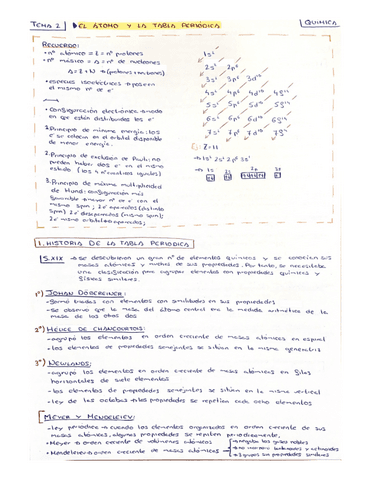 TEMA 2 EL ÁTOMO Y LA TABLA PERIÓDICA
QUÍMICA
RECUERDO:
• nº atómico = Z = nº protones
• nº másico = A = nº de nucleones
A = Z + N → (protones + neutrones)
• especies isoelectrónicas → poseen
el mismo nº de e⁻
• Configuración electrónica: modo
en que están distribuidos los e⁻
1. Principio de mínima energía: los
e⁻ se colocan en el orbital disponible
de menor energía.
2. Principio de exclusión de Pauli: no
pueden haber dos e⁻ en el mismo
estado (los 4 nº cuánticos iguales)
3. Principio de máxima multiplicidad
de Hund: configuración más
favorable → mayor nº de e⁻ con el
mismo spin
1s²
2s² 2p⁶
3s² 3p⁶ 3d¹⁰
4s² 4p⁶ 4d¹⁰ 4f¹⁴
5s² 5p⁶ 5d¹⁰ 5f¹⁴
6s² 6p⁶ 6d¹⁰ 6f¹⁴
7s² 7p⁶ 7d¹⁰ 7f¹⁴
Z = 11
→ 1s² 2s² 2p⁶ 3s¹
1. HISTORIA DE LA TABLA PERIODICA
S.XIX → se descubrieron un gran nº de elementos químicos y se conocían sus
masas atómicas y muchas de sus propiedades. Por tanto, se necesitaba
una clasificación para agrupar elementos con propiedades químicas y
físicas similares.
1º) JOHAN DÖBEREINER:
• formó tríadas con elementos con similitudes en sus propiedades
• se observó que la masa del átomo central era la media aritmética de la
masa de los otros dos
2º) HÉLICE DE CHANCOURTOIS:
• agrupó los elementos en orden creciente de masas atómicas en espiral
• los elementos de propiedades semejantes se sitúan en la misma generatriz
3º) NEWLANDS:
• agrupó los elementos en orden creciente de masas atómicas en filas
horizontales de siete elementos
• los elementos de propiedades semejantes se sitúan en la misma vertical
• ley de las octavas → las propiedades se repetían cada ocho elementos
MEYER Y MENDELEIEV:
• ley periódica → cuando los elementos organizados en orden creciente de sus
masas atómicas, algunas propiedades se repiten periódicamente.
• Meyer → orden creciente de volúmenes atómicos
• Mendeleiev → orden creciente de masas atómicas